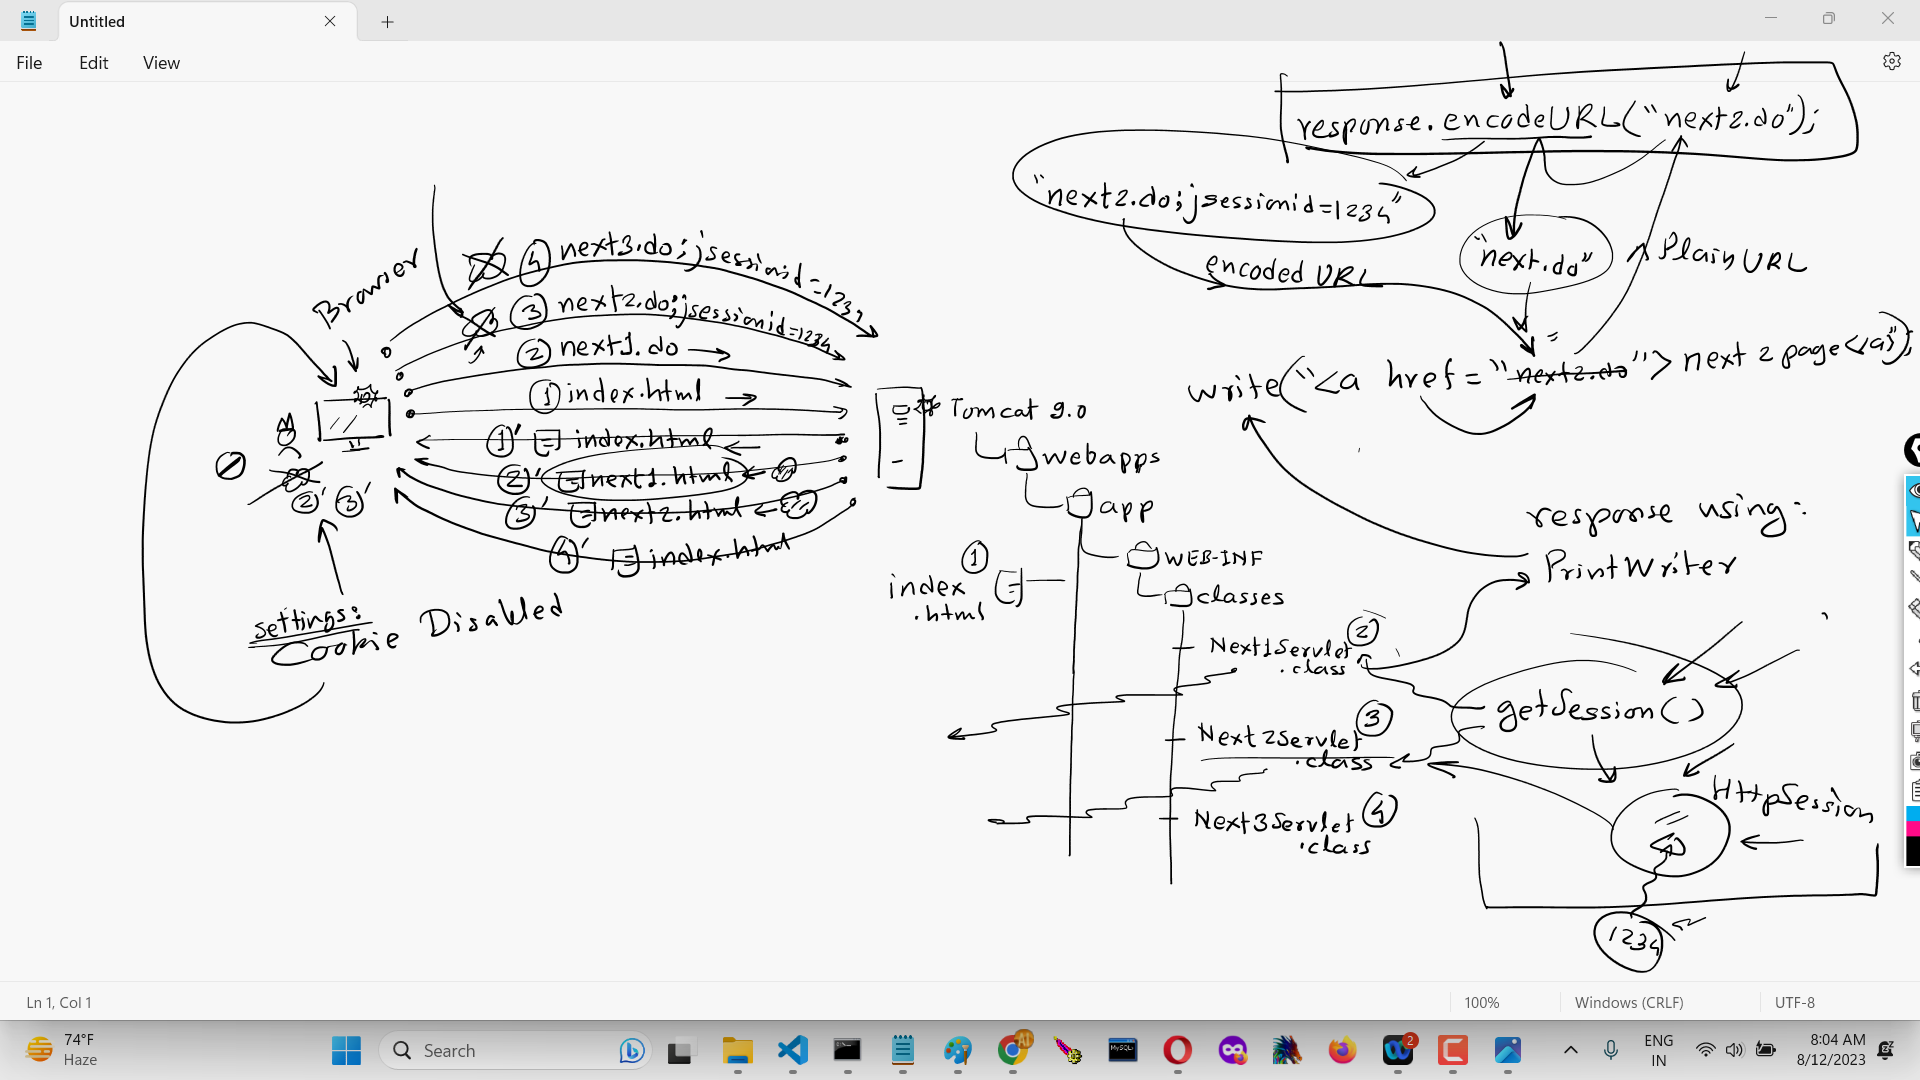 Untitled
File Edit View
response.encodeURL("next2.do");
"next2.do;jsessionid=1234"
"next.do"
Plain URL
encoded URL
write("<a href="next2.do"> next 2 page</a>");
Browser
4 next3.do;jsessionid=1234
3 next2.do;jsessionid=1234
2 next1.do
1 index.html
1' index.html
2' next1.html
3' next2.html
4' index.html
2' 3'
settings:
Cookie Disabled
Tomcat 9.0
webapps
app
WEB-INF
classes
1
index
.html
Next1Servlet 2
.class
Next2Servlet 3
.class
Next3Servlet 4
.class
response using:
PrintWriter
getSession()
HttpSession
1234
Ln 1, Col 1
100%
Windows (CRLF)
UTF-8
74°F
Haze
Search
MySQL
2
ENG
IN
8:04 AM
8/12/2023